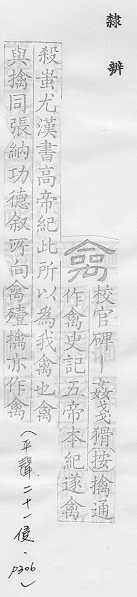 隸辨
禽
校官碑丨姦戔猾按擒通
作禽史記五帝本紀遂禽
殺蚩尤漢書高帝紀此所以為我禽也禽
與擒同張納功德叙所向禽殪擒亦作禽
(平聲二十一侵·p306)